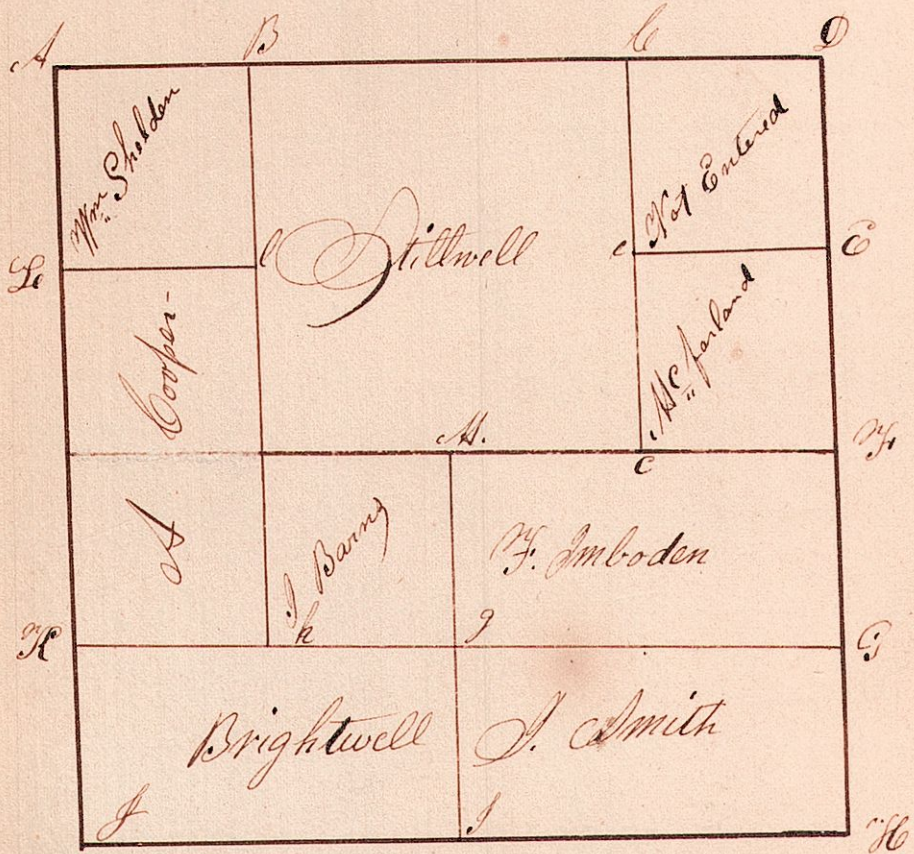 A B C D
Wm Shelden
Stillwell
Not Entered
L l e E
Cooper
McFarland
M. c F
A
I Barns
F. Imboden
K k g G
Brightwell
J. Smith
J I H